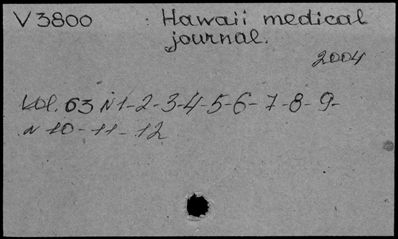 V3800 : Hawaii medical
journal.
2004
Vol. 63 N 1-2-3-4-5-6-7-8-9-
N 10-11-12